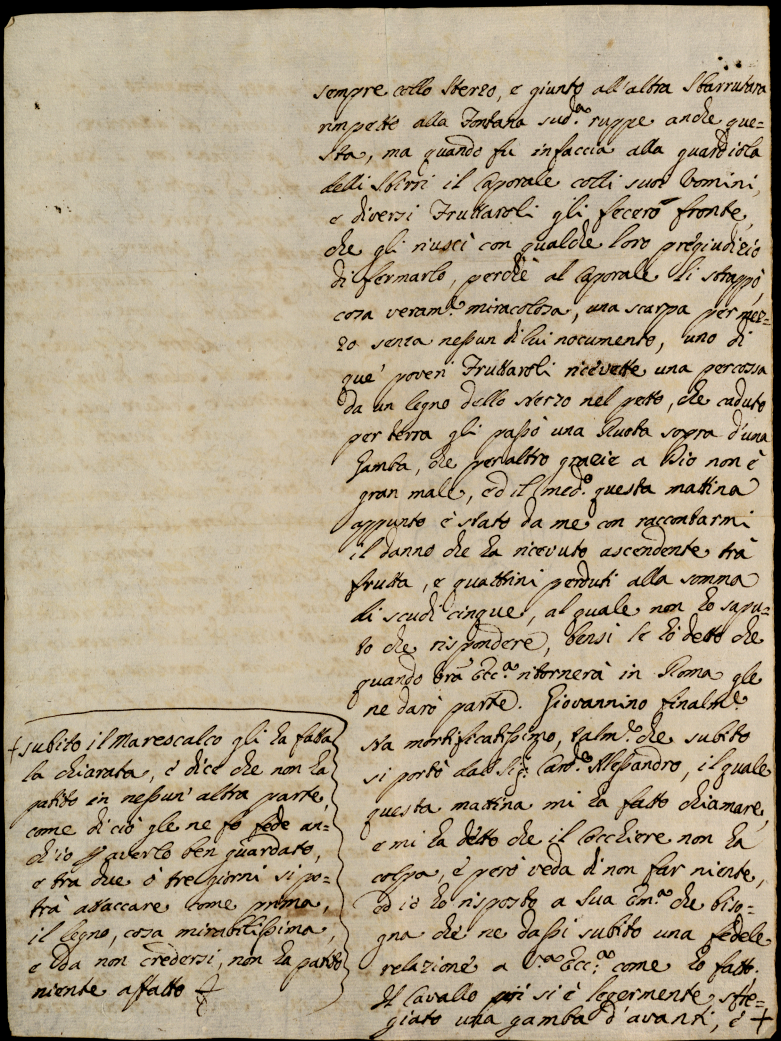 sempre collo sterzo, e giunto all'altra Sbarrutara
rimpetto alla Fontana sud.ª ruppe anche que=
sta, ma quando fu infaccia alla guardiola
delli Sbirri il Caporale colli suoi Uomini,
e diversi Fruttaroli gli fecero fronte,
che gli riuscì con qualche loro pregiudizio
di fermarlo, perchè al Caporale li strappò,
cosa veram.e miracolosa, una scarpa per mez=
zo senza nessun di lui nocumento, uno di
que' poveri Fruttaroli ricevette una percossa
da un legno dello sterzo nel petto, che caduto
per terra gli passò una Ruota sopra d'una
gamba, che peraltro grazie a Dio non è
gran male, ed il med.º questa mattina
appunto è stato da me con raccontarmi
il danno che ha ricevuto ascendente trà
frutta, e quattrini perduti alla somma
di scudi cinque, al quale non ho sapu=
to che rispondere, bensì le hò detto che
quando Vrã Ecc.ª ritornerà in Roma gle
ne darò parte. Giovannino finalm.e
sta mortificatissimo, talm.e che subito
si portò dal Sig.r Card.e Alessandro, il quale
questa mattina mi ha fatto chiamare,
e mi ha detto che il Cocchiere non ha
colpa, e però veda di non far niente,
ed iò ho risposto a Sua Em.ª che biso=
gna che ne dassi subito una fedele
relazione a V.ª Ecc.ª come ho fatto.
Il Cavallo poi si è legermente sfre=
giato una gamba d'avanti, e +
+ subito il Marescalco gli ha fatta
la chiarata, e dice che non ha
patito in nessun'altra parte,
come di ciò gle ne fo fede an=
ch'io p averlo ben guardato,
e tra due ò tre giorni si po=
trà attaccare come prima,
il legno, cosa mirabilissima,
e da non credersi, non ha patito
niente affatto